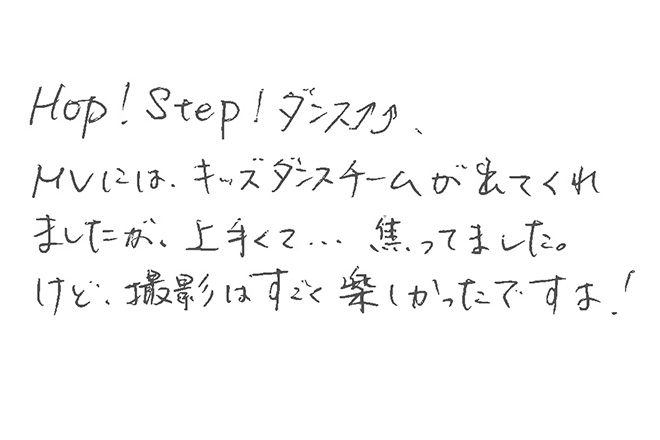 Hop! Step! ダンス↑↑、
MVには、キッズダンスチームが出てくれ
ましたが、上手くて… 焦ってました。
けど、撮影はすごく楽しかったですよ!